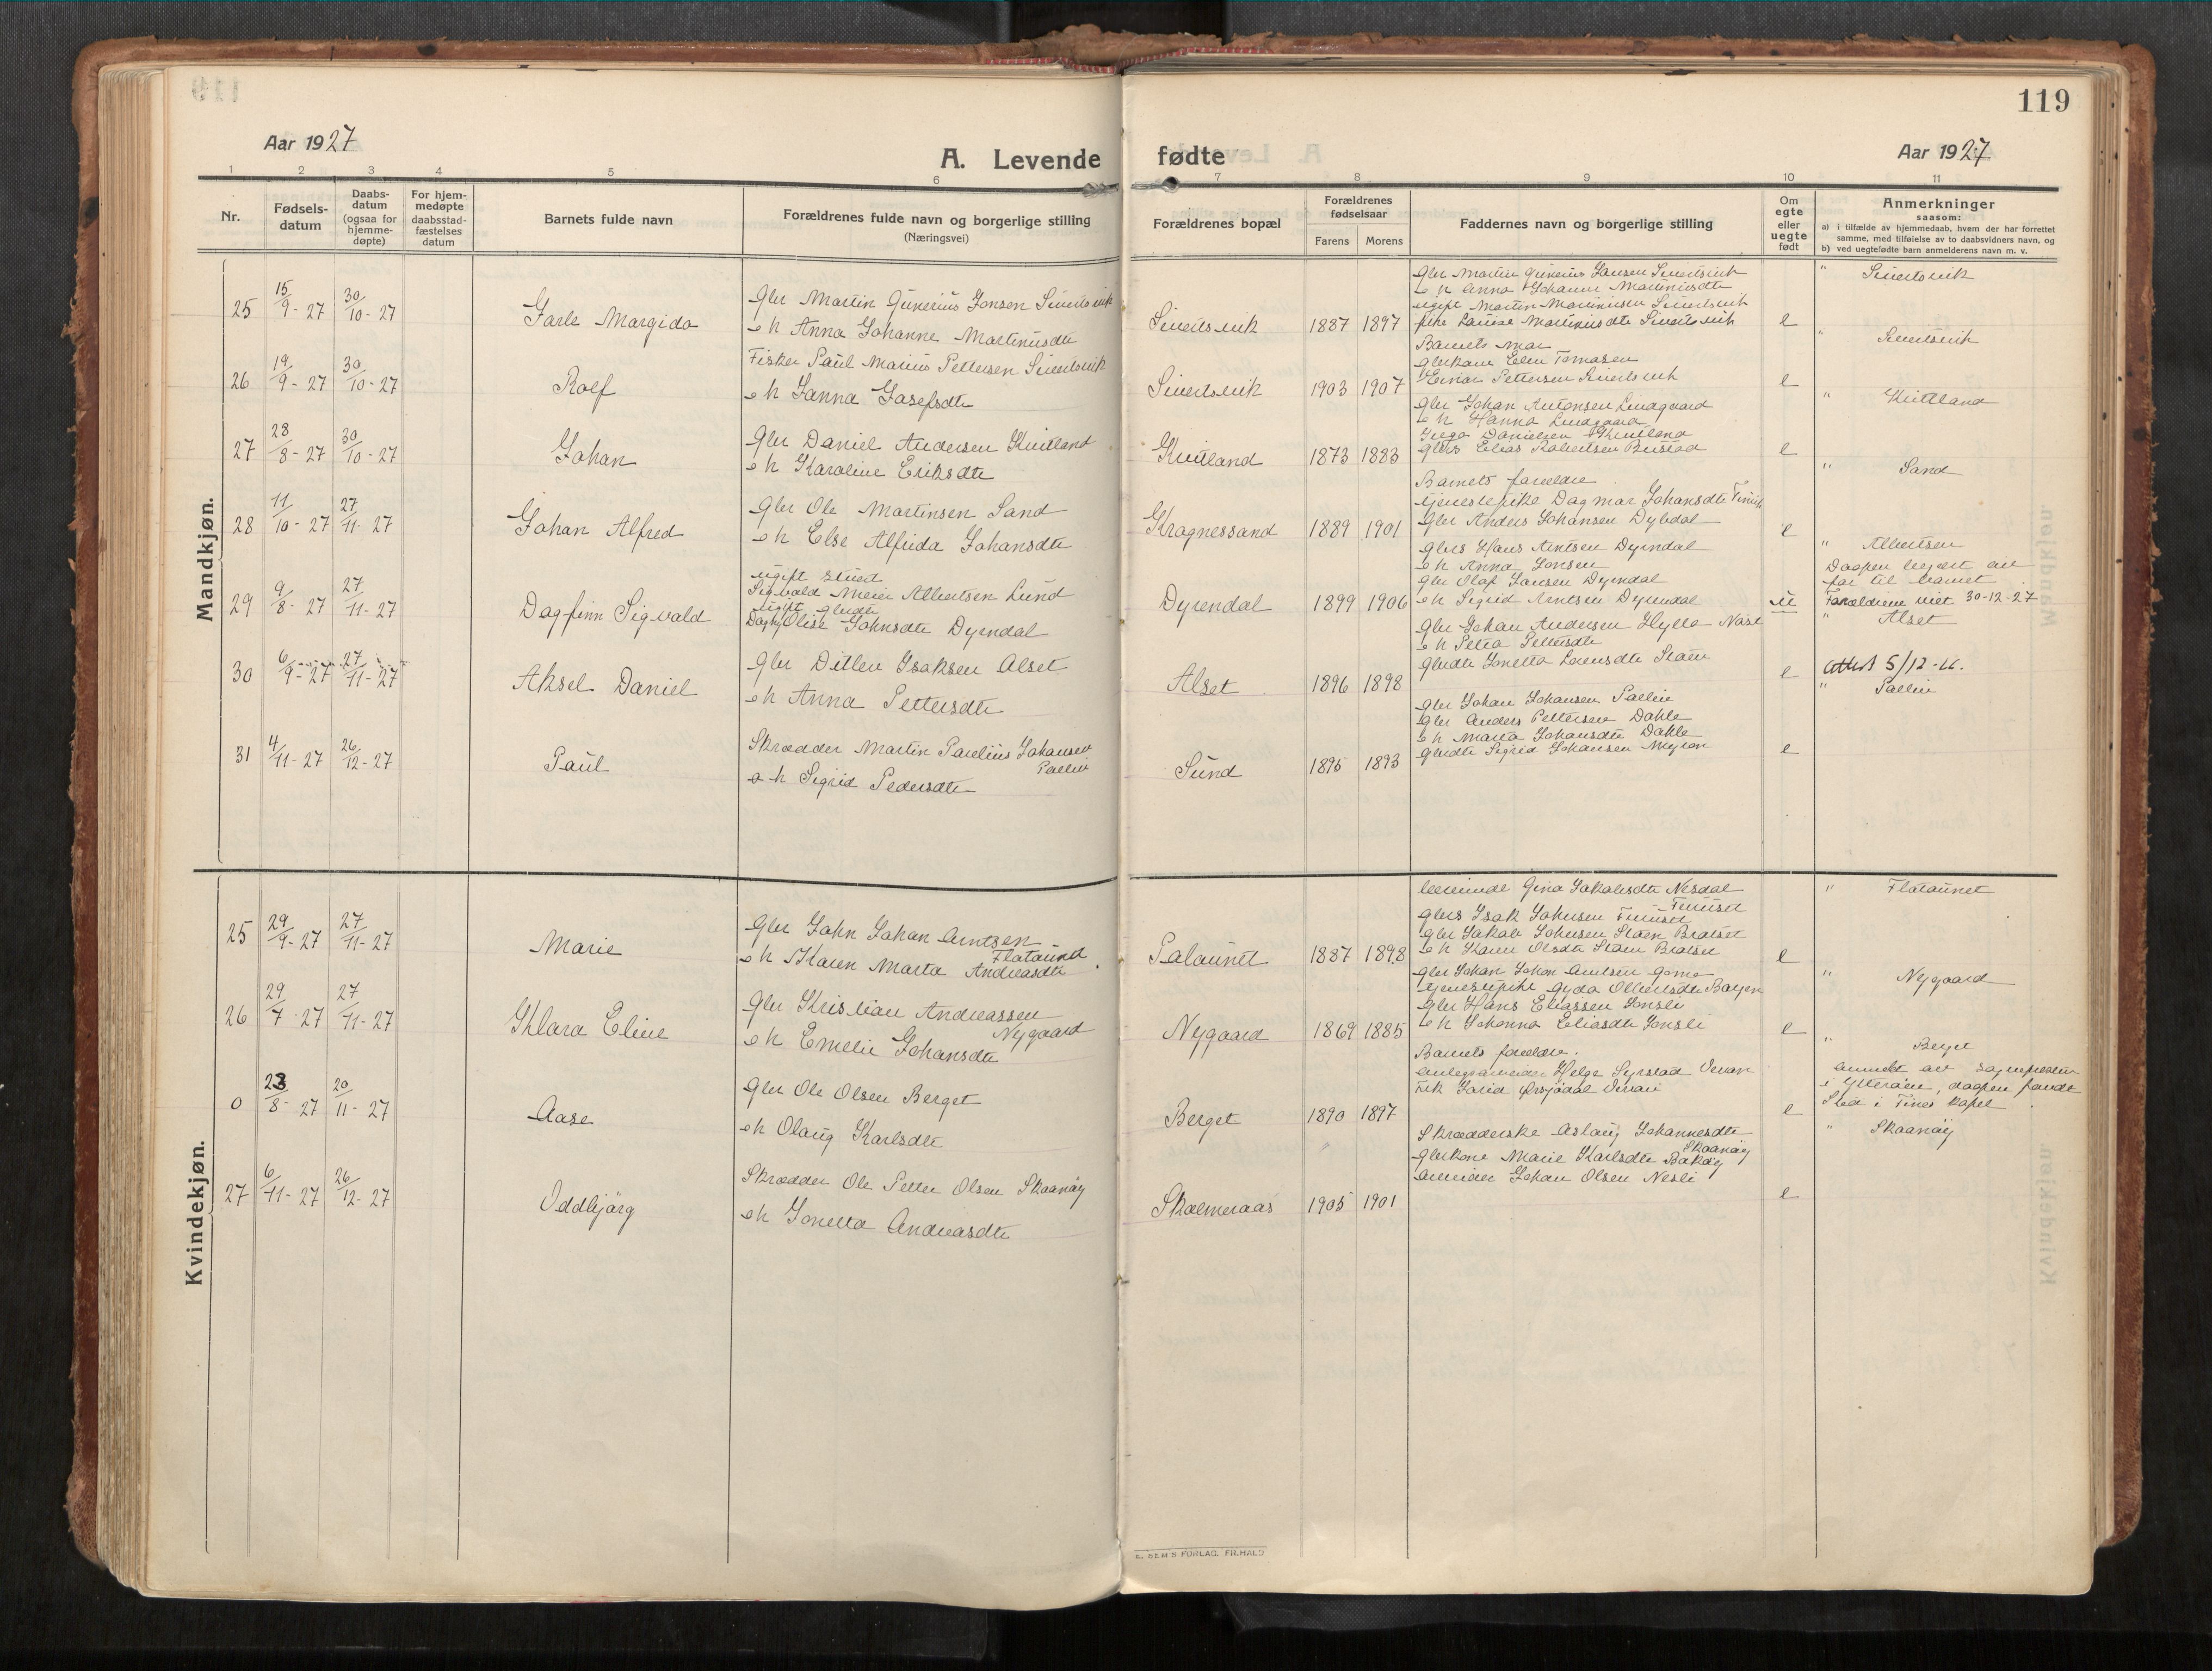 119
Aar 1927
A. Levende fødte
Aar 1927
1 2 3 4 5 6 7 8 9 10 11
Nr.
Fødsels-
datum
Daabs-
datum
(ogsaa for
hjemme-
døpte)
For hjem-
medøpte
daabsstad-
fæstelses
datum
Barnets fulde navn
Forældrenes fulde navn og borgerlige stilling
(Næringsvei)
Forældrenes bopæl
Forældrenes
fødselsaar
Farens Morens
Faddernes navn og borgerlige stilling
Om
egte
eller
uegte
født
Anmerkninger
saasom:
a) i tilfælde av hjemmedaab, hvem der har forrettet
samme, med tilføielse av to daabsvidners navn, og
b) ved uegtefødte barn anmelderens navn m. v.
Mandkjøn.
25 15/9-27 30/10-27
Jarle Margido
Gbr Martin Gunerius Jonsen Sivertsvik
o h Anna Johanne Martinusdtr
Sivertsvik 1887 1897
Gbr Martin Gunerius Jansen Sivertsvik
o h Anna Johanne Martinusdtr
ugift Martin Martinusen Sivertsvik
pike Lauise Martinusdtr Sivertsvik
e
" Sivertsvik
26 19/9-27 30/10-27
Rolf
Fisker Paul Marius Pettersen Sivertsvik
o h Janna Josefsdtr
Sivertsvik 1903 1907
Barnets mor
Gbrkone Elen Tomasen
Einar Pettersen Sivertsvik
e
" Sivertsvik
27 28/8-27 30/10-27
Johan
Gbr Daniel Andersen Kvitland
o h Karoline Eriksdtr
Kvitland 1873 1883
Gbr Johan Antonsen Lindgaard
o h Hanna Lindgaard
Danielsen Kvitland
Gbrs Elias Robertsen
e
" Kvitland
28 11/10-27 27/11-27
Johan Alfred
Gbr Ole Martinsen Sand
o h Else Alfrida Johansdtr
Kragnessand 1889 1901
Barnets forældre
tjenestepike Dagmar Johansdtr
Gbr Anders Johansen Dybdal
e
" Sand
29 9/8-27 27/11-27
Dagfinn Sigvald
ugift
Sigvald Meier Albertsen Lund
ugift gbrdtr
Dagny Olise Johnsdtr Dyrndal
Dyrendal 1899 1906
Gbrs Hans Arntsen Dyrndal
o h Anna Jonsen
Gbr Olaf Jansen Dyrndal
o h Sigrid Arntsen Dyrendal
u
" Albertsen
Daapen begjært av
far til barnet
Forældrene viet 30-12-27
30 6/9-27 27/11-27
Aksel Daniel
Gbr Ditlev Isaksen Alset
o h Anna Pettersdtr
Alset 1896 1898
Gbr Johan Andersen Hylla
o h Petra Pettersdtr
Gbrdtr Jonetta Lorensdtr
e
" Alset
Attest 5/12-
31 4/11-27 26/12-27
Paul
Skrædder Martin Paulius Johansen
o h Sigrid Pedersdtr
Sund 1895 1893
Gbr Johan Johansen
Gbr Anders Pettersen Dahle
o h Marta Johansdtr Dahle
Gbrdtr Sigrid Johansen Myran
e
Kvindekjøn.
25 29/9-27 27/11-27
Marie
Gbr John Johan Arntsen
Flataund
o h Karen Marta Andreasdtr
1887 1898
Gina Jakobsdtr Nesdal
Gbrs Isak Johnsen
Gbr Jakob Johnsen
o h Karen Olsdtr
e
" Flataunet
26 29/7-27 27/11-27
Klara Eline
Gbr Kristian Andreassen
Nygaard
o h Emelie Johansdtr
Nygaard 1869 1885
Gbr Johan Johan Arntsen
tjenestepike Gyda Olbertsdtr
Gbr Hans Eliassen
o h Johanna Eliasdtr
e
" Nygaard
0 23/8-27 20/11-27
Aase
Gbr Ole Olsen Berget
o h Olaug Karlsdtr
Berget 1890 1897
Barnets forældre.
Anlegsarbeider Helge Syrstad
Frk
e
" Berget
Anmeldt av sognepresten
i Ytterøen, daapen fandt
sted i Tines kapel
27 6/11-27 26/12-27
Oddbjørg
Skrædder Ole Petter Olsen Skaanøy
o h Jonetta Andreasdtr
Skalmeraas 1905 1901
Skrædderske Aslaug Johannesdtr
Skaanøy
Gbrkone Marie Karlsdtr Bakøy
Arbeider Johan Olsen Nesli
e
" Skaanøy
E. SEM'S FORLAG. FR.HALD